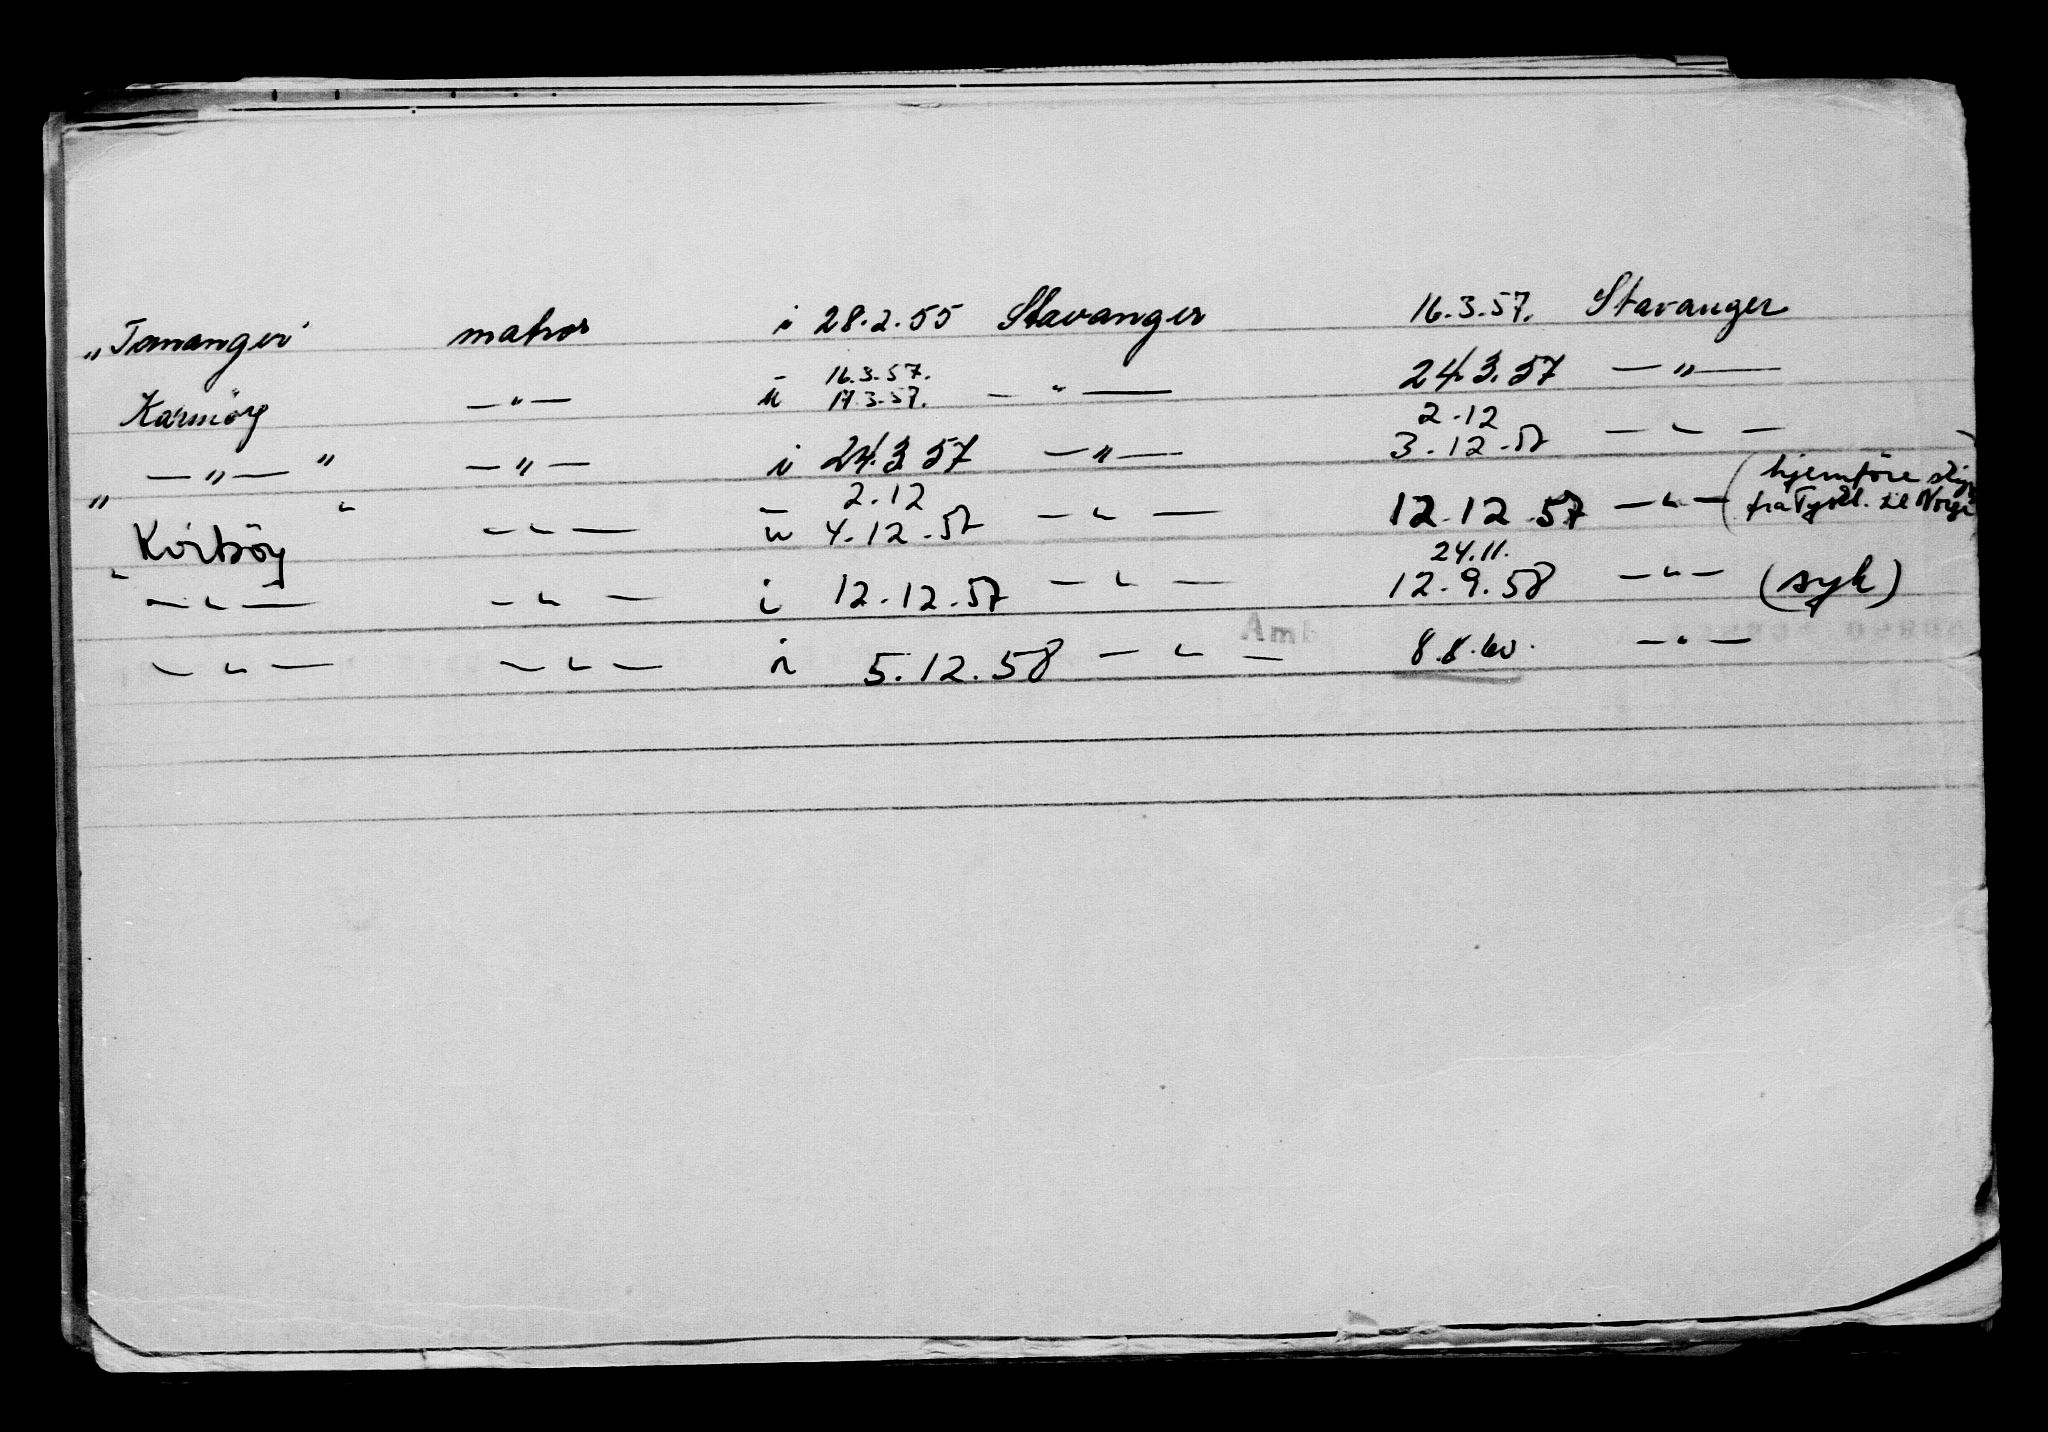 „Tananger" matros i 28.2.55 Stavanger 16.3.57. Stavanger
Karmöy —„— u 16.3.57. 17.3.57. —„— 24.3.57 —„—
—„— " —„— i 24.3.57 —„— 2.12 3.12.57 —„—
„ Kvitsöy " —„— u 2.12 4.12.57 —„— 12.12.57 —„— (hjemföre
fra Tyskl. til Norge
" —„— —„— i 12.12.57 —„— 24.11. 12.9.58 —„— (syk)
—„— —„— i 5.12.58 —„— 8.8.60. —„—
Amb